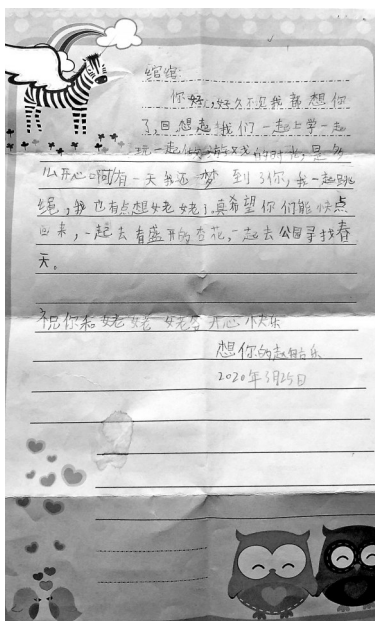 缩缩:
你好,好久不见我都想你
了,回想起我们一起上学一起
玩一起做游戏的时光,是多
么开心啊有一天我还梦到了你,我一起跳
绳,我也有点想姥姥了。真希望你们能快点
回来,一起去看盛开的杏花,一起去公园寻找春
天。
祝你和姥姥 姥爷开心快乐
想你的赵
2020年3月25日